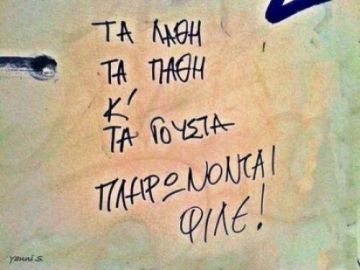 ΤΑ ΛΑΘΗ
ΤΑ ΠΑΘΗ
Κ'
ΤΑ ΓΟΥΣΤΑ
ΠΛΗΡΩΝΟΝΤΑΙ
ΦΙΛΕ!
Yanni S.